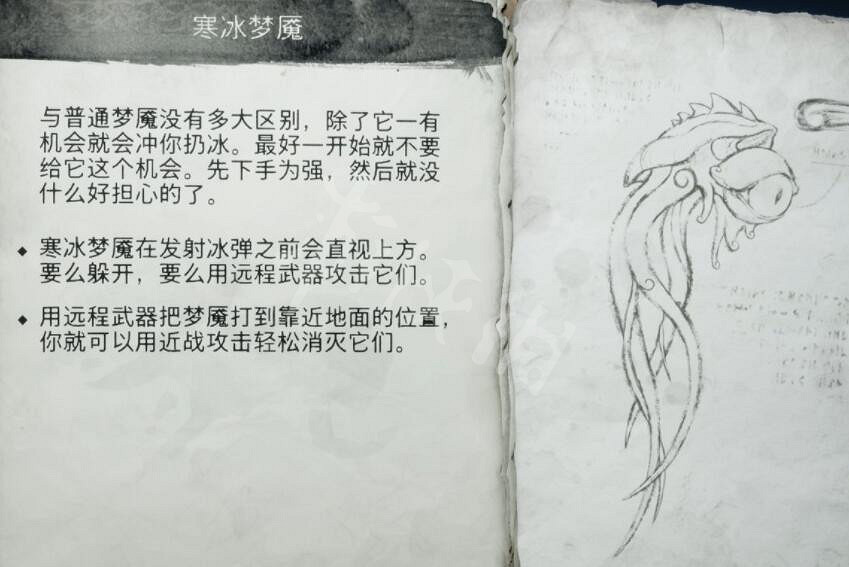 寒冰梦魇
与普通梦魇没有多大区别，除了它一有
机会就会冲你扔冰。最好一开始就不要
给它这个机会。先下手为强，然后就没
什么好担心的了。
◆ 寒冰梦魇在发射冰弹之前会直视上方。
要么躲开，要么用远程武器攻击它们。
◆ 用远程武器把梦魇打到靠近地面的位置，
你就可以用近战攻击轻松消灭它们。